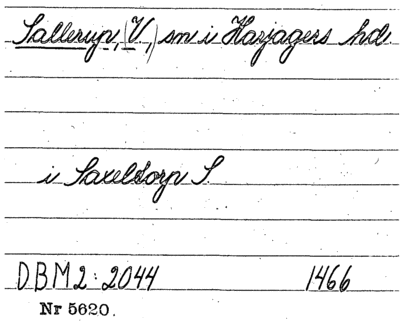 Sallerup, (V,) sn i Harjagers hd
i Saxeldorp S.
DBM2: 2044 1466
Nr 5620.